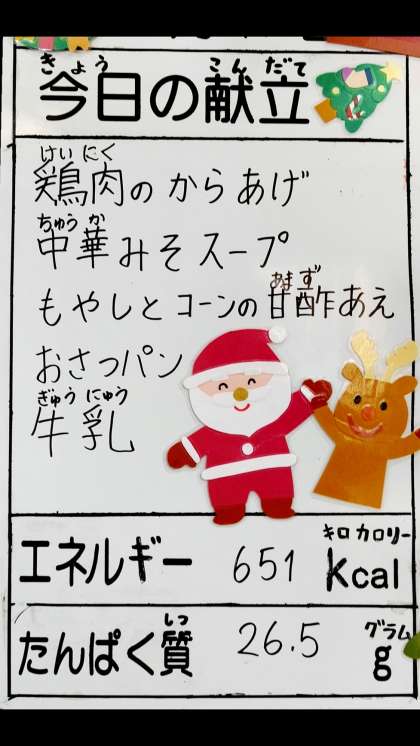 きょう こんだて
今日の献立
けいにく
鶏肉のからあげ
ちゅうか
中華みそスープ
あまず
もやしとコーンの甘酢あえ
おさつパン
ぎゅうにゅう
牛乳
キロカロリー
エネルギー 651 kcal
しつ グラム
たんぱく質 26.5 g